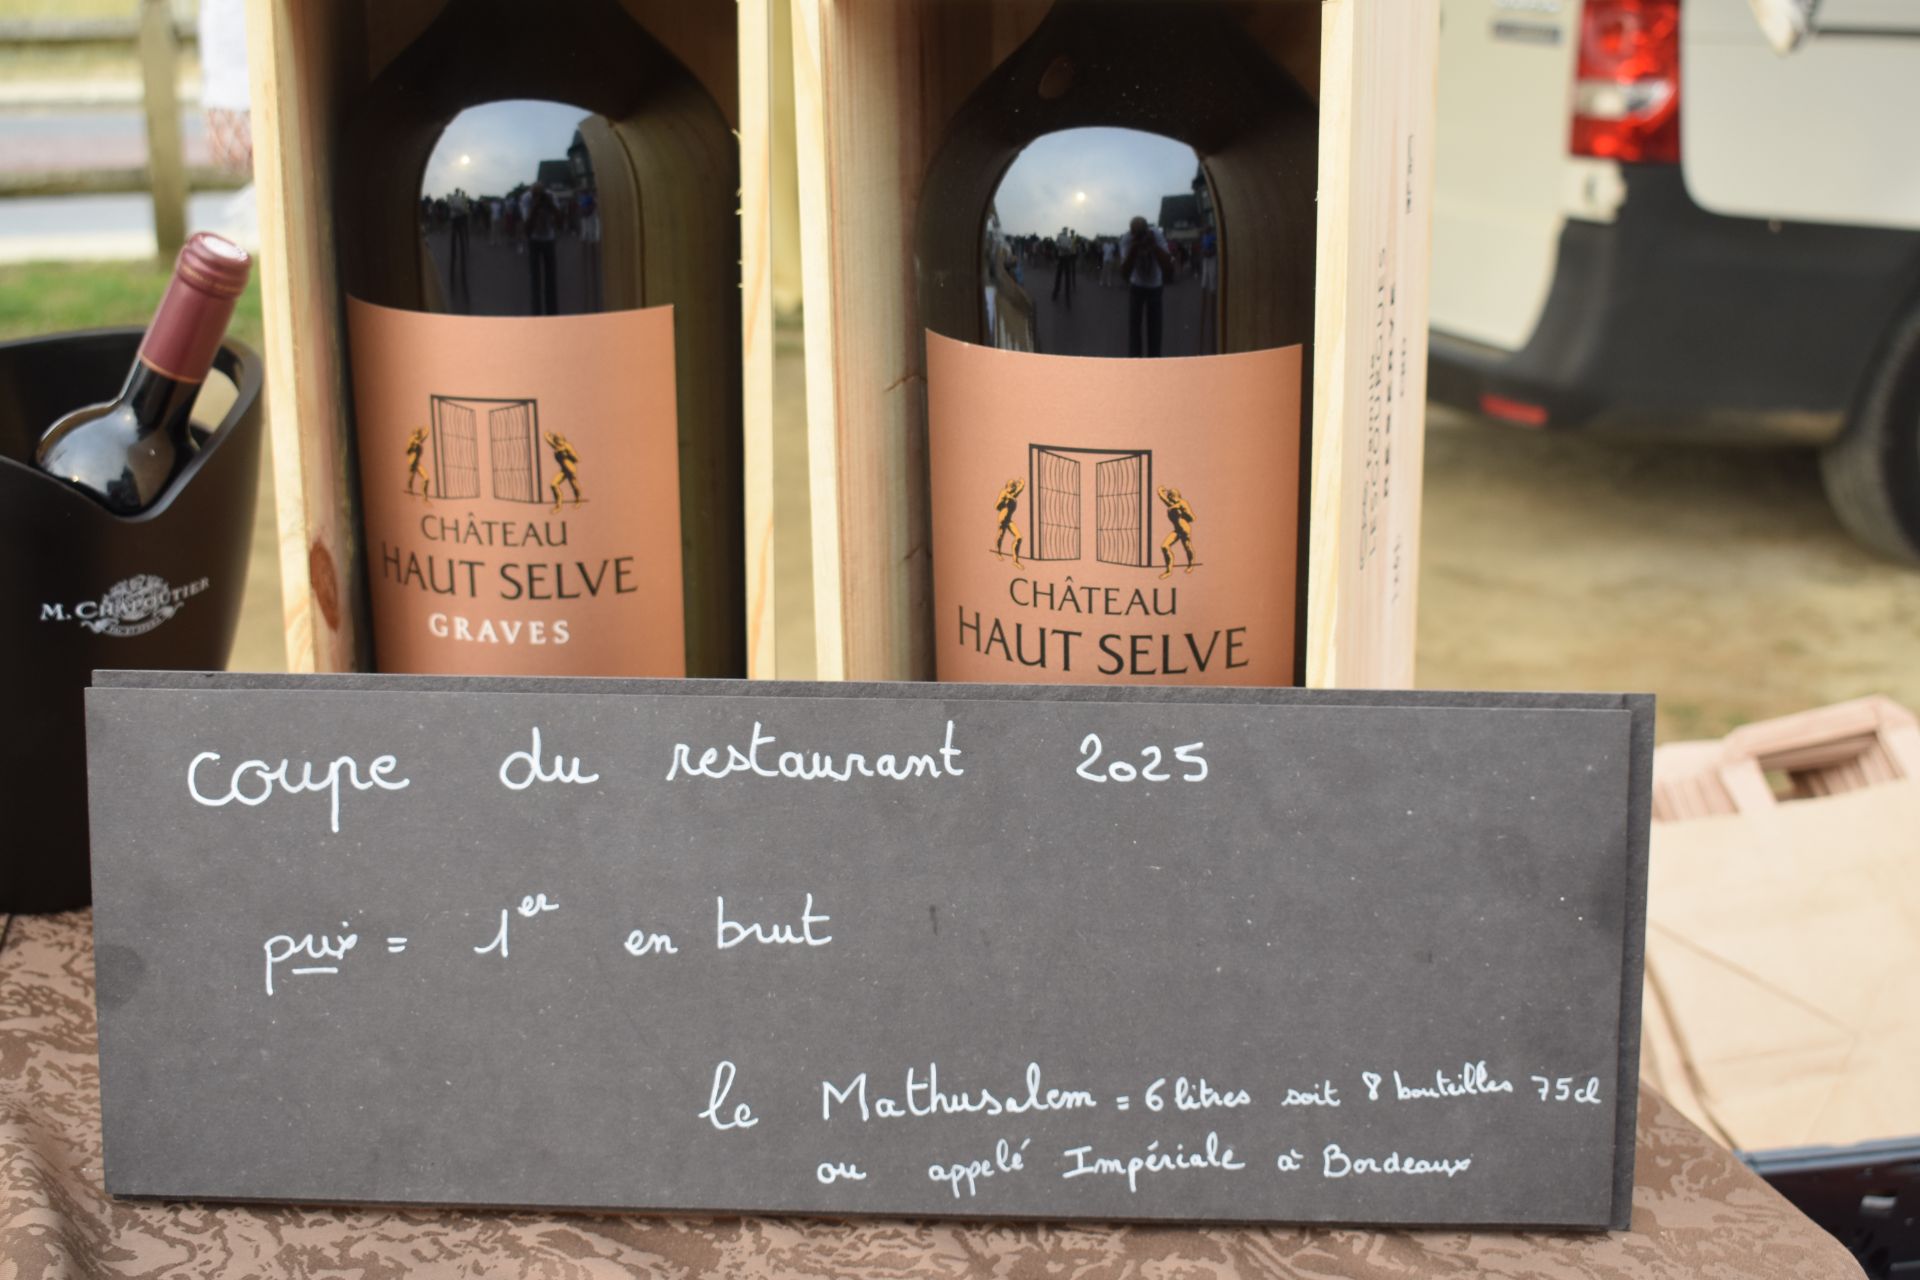 M. CHAPOUTIER
CHÂTEAU
HAUT SELVE
GRAVES
CHÂTEAU
HAUT SELVE
RESERVE
coupe du restaurant 2025
prix = 1er en brut
le Mathusalem = 6 litres soit 8 bouteilles 75cl
ou appelé Impériale à Bordeaux